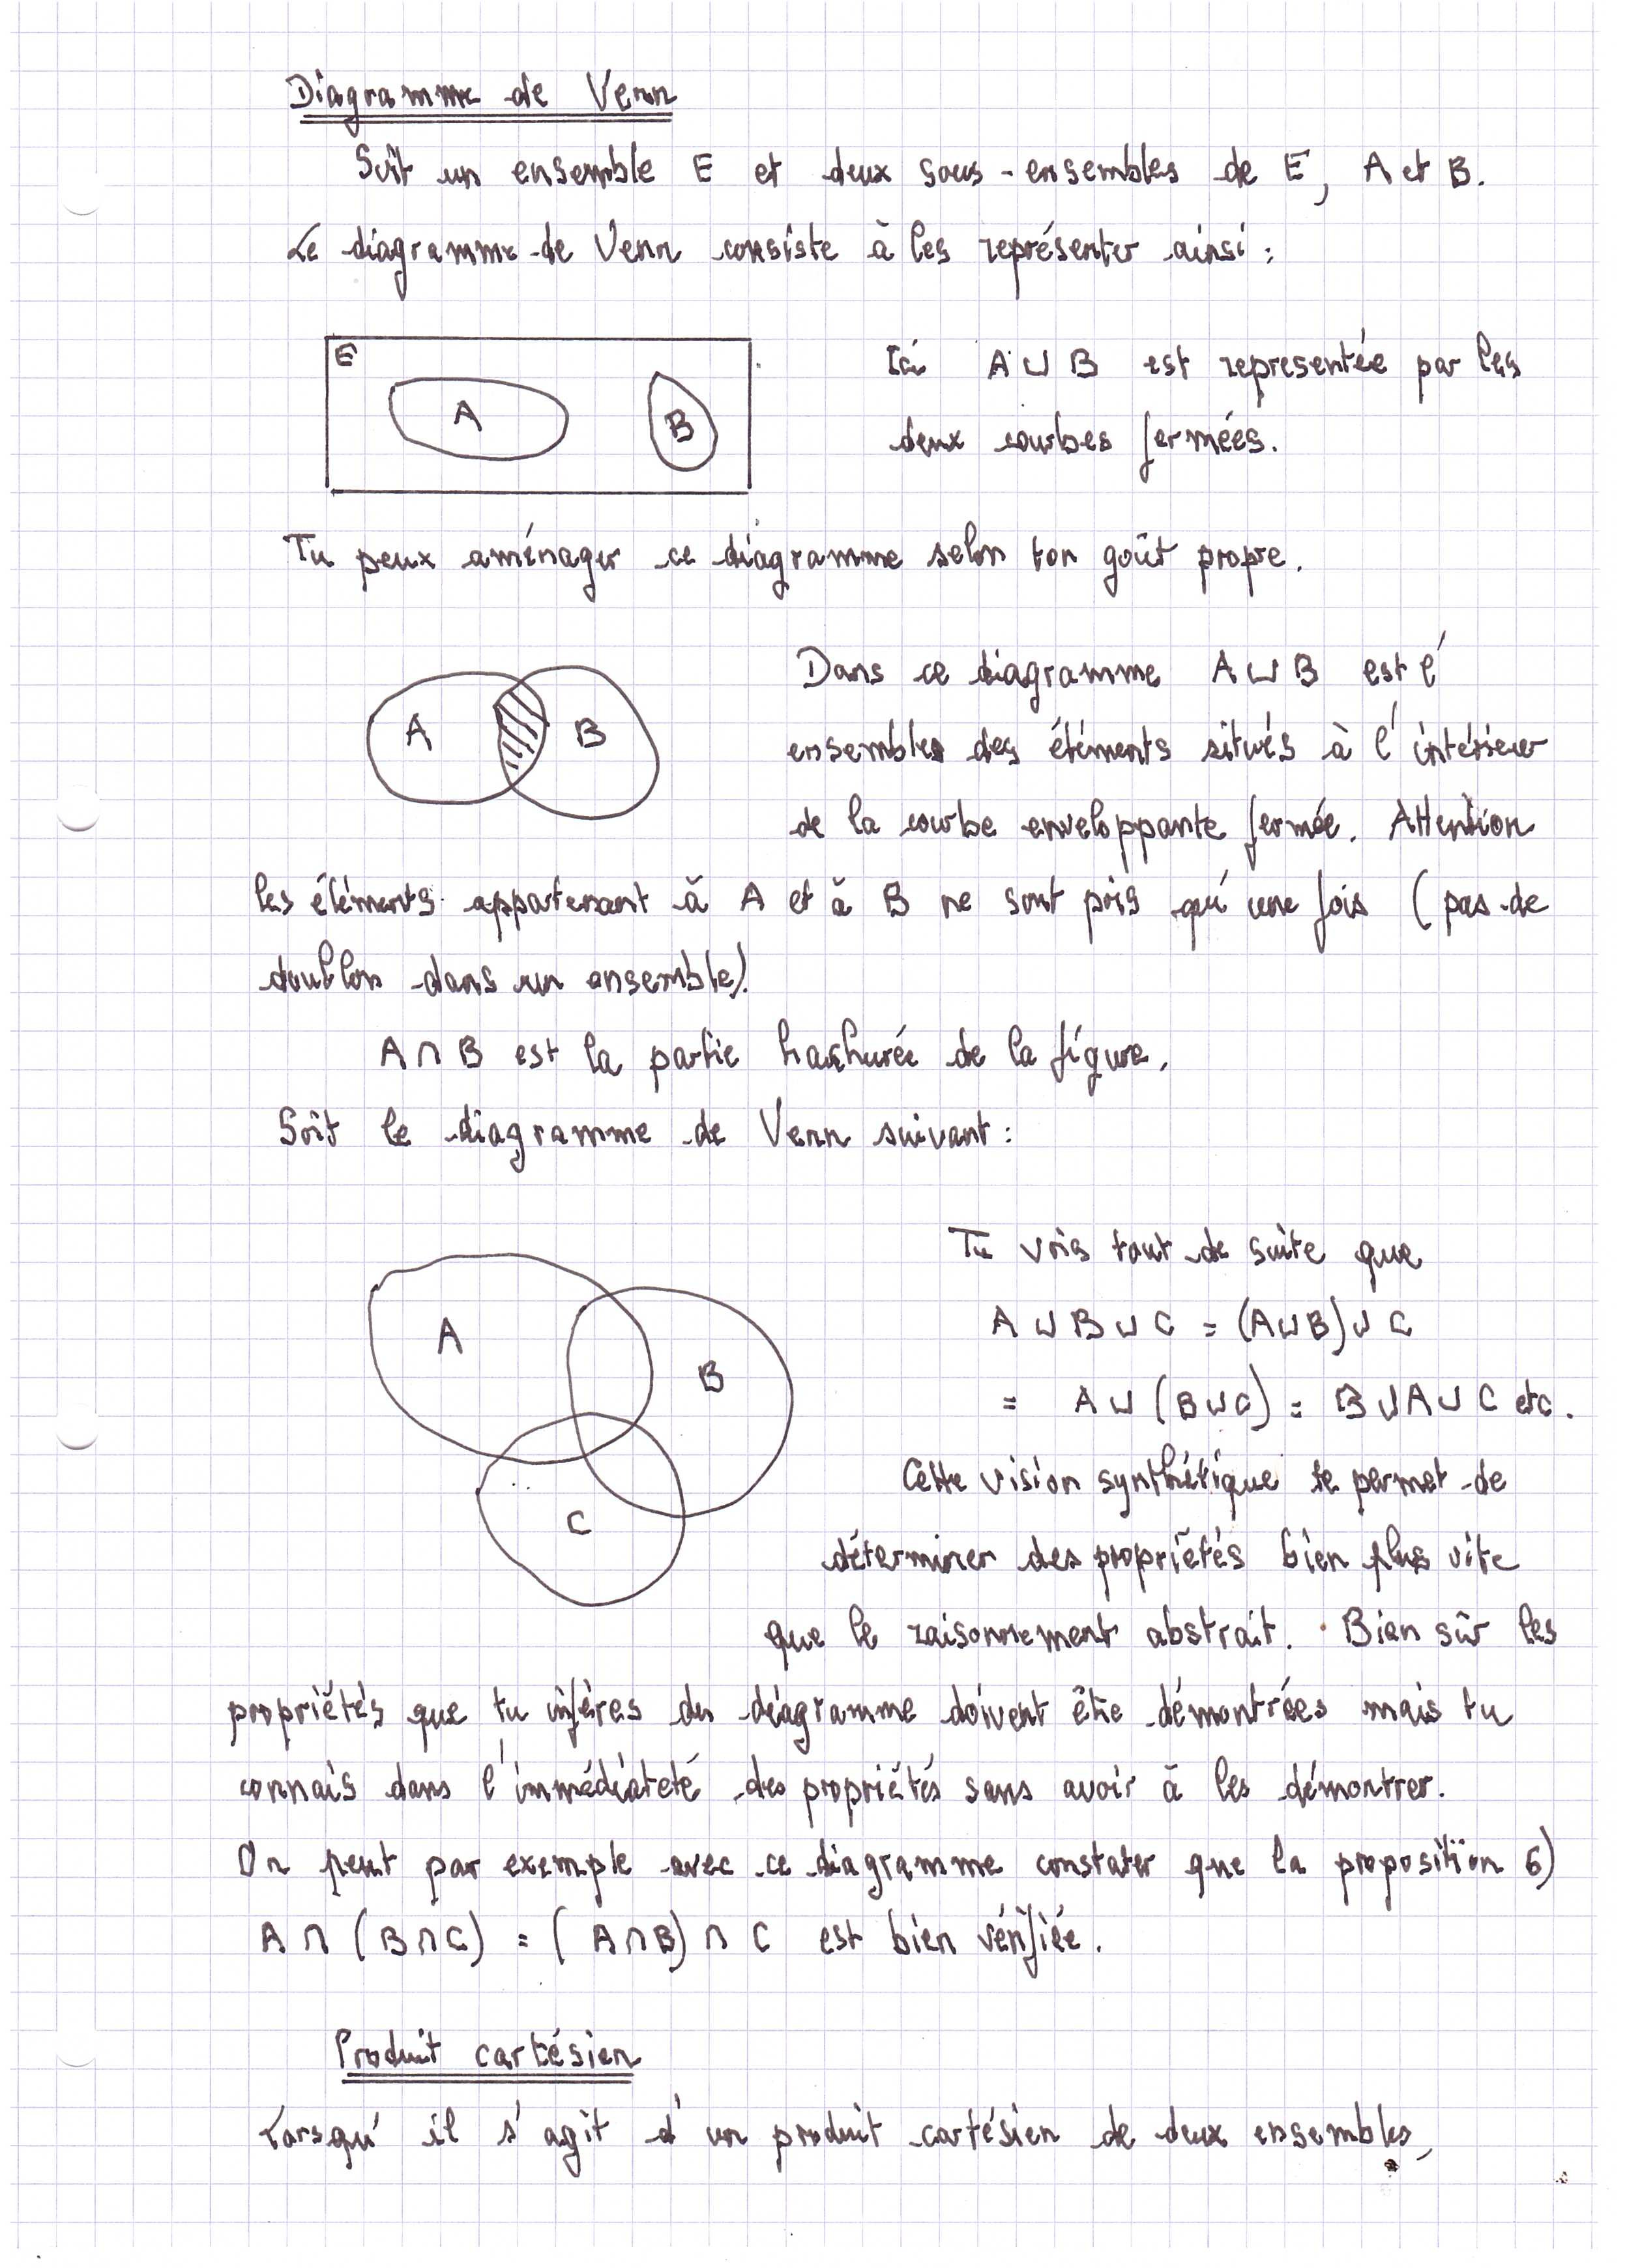 Diagramme de Venn
Soit un ensemble E et deux sous-ensembles de E, A et B.
Le diagramme de Venn consiste à les représenter ainsi :
E
A
B
Ici A ∪ B est representée par les
deux courbes fermées.
Tu peux aménager ce diagramme selon ton goût propre.
A
B
Dans ce diagramme A ∪ B est l'
ensembles des éléments situés à l'intérieur
de la courbe enveloppante fermée. Attention
les éléments appartenant à A et à B ne sont pris qu'une fois (pas de
doublon dans un ensemble).
A ∩ B est la partie hachurée de la figure.
Soit le diagramme de Venn suivant :
A
B
C
Tu vois tout de suite que
A ∪ B ∪ C = (A ∪ B) ∪ C
= A ∪ (B ∪ C) = B ∪ A ∪ C etc.
Cette vision synthétique te permet de
déterminer des propriétés bien plus vite
que le raisonnement abstrait. Bien sûr les
propriétés que tu infères du diagramme doivent être démontrées mais tu
connais dans l'immédiateté des propriétés sans avoir à les démontrer.
On peut par exemple avec ce diagramme constater que la proposition 6)
A ∩ (B ∩ C) = (A ∩ B) ∩ C est bien vérifiée.
Produit cartésien
Lorsqu'il s'agit d'un produit cartésien de deux ensembles,